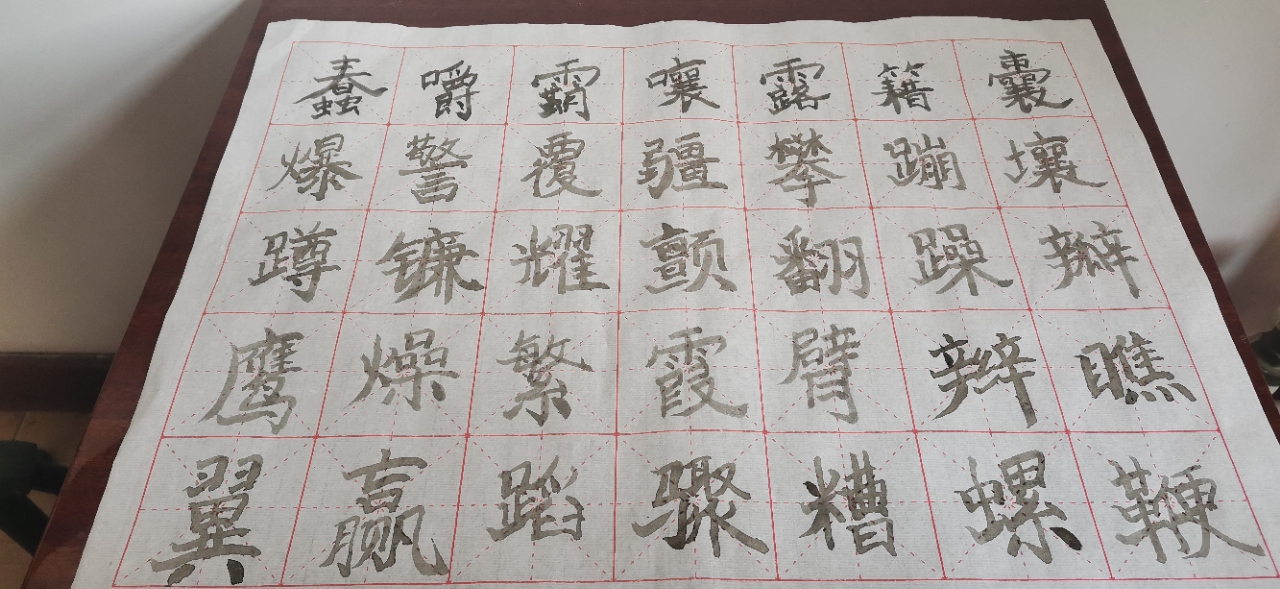 蠢嚼霸嚷露籍囊
爆警覆疆攀蹦壤
蹲镰耀颤翻躁瓣
鹰燥繁霞臂辫瞧
翼赢蹈骤糟螺鞭